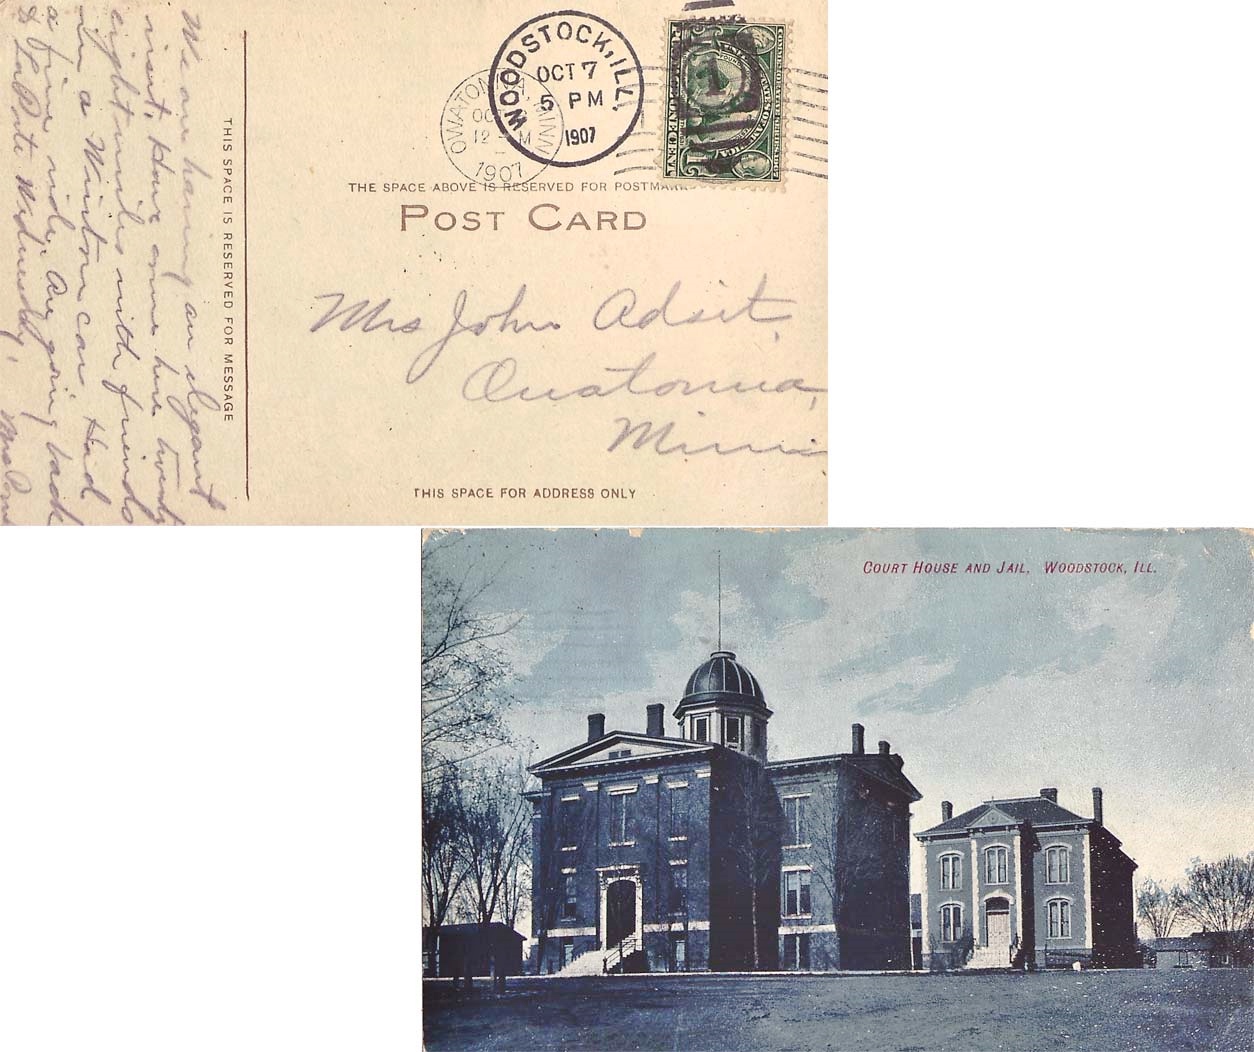 We are having an elegant
visit. Have come here twenty
eight miles with friends
in a Winton car. Had
a fine ride. Are going back
to LaPorte Wednesday. Mrs
THIS SPACE IS RESERVED FOR MESSAGE
WOODSTOCK, ILL.
OCT 7
5 PM
1907
OWATONNA, MINN
OCT
12 M
1907
1
ONE CENT
THE SPACE ABOVE IS RESERVED FOR POSTMARK
POST CARD
Mrs John Adsit,
Ouatonna,
Minn
THIS SPACE FOR ADDRESS ONLY
COURT HOUSE AND JAIL, WOODSTOCK, ILL.